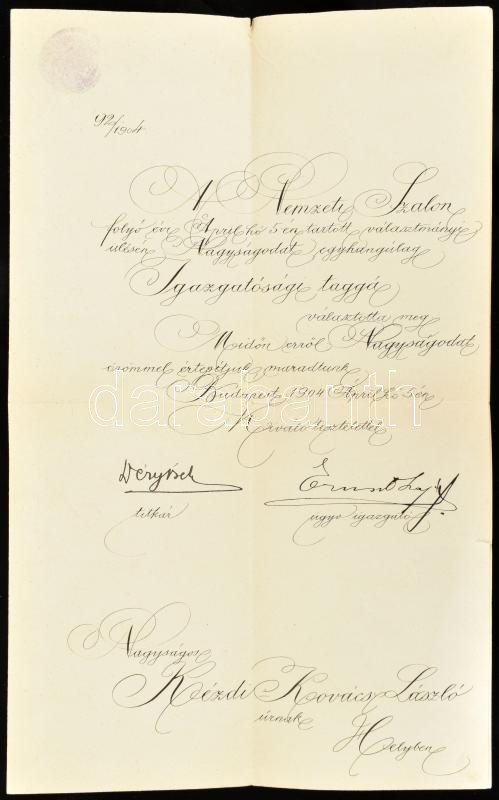 92/1904
A Nemzeti Szalon
folyó évi April hó 5 én tartott választmányi
ülésén Nagyságodat egyhangúlag
Igazgatósági taggá
választotta meg
Midőn erről Nagyságodat
örömmel értesítjük maradtunk
Budapest 1904 April hó 5én
Kiváló tisztelettel
darabanth
titkár
Ernst Lajos
ügyv igazgató
Nagyságos
Kézdi Kovács László
úrnak
Helyben